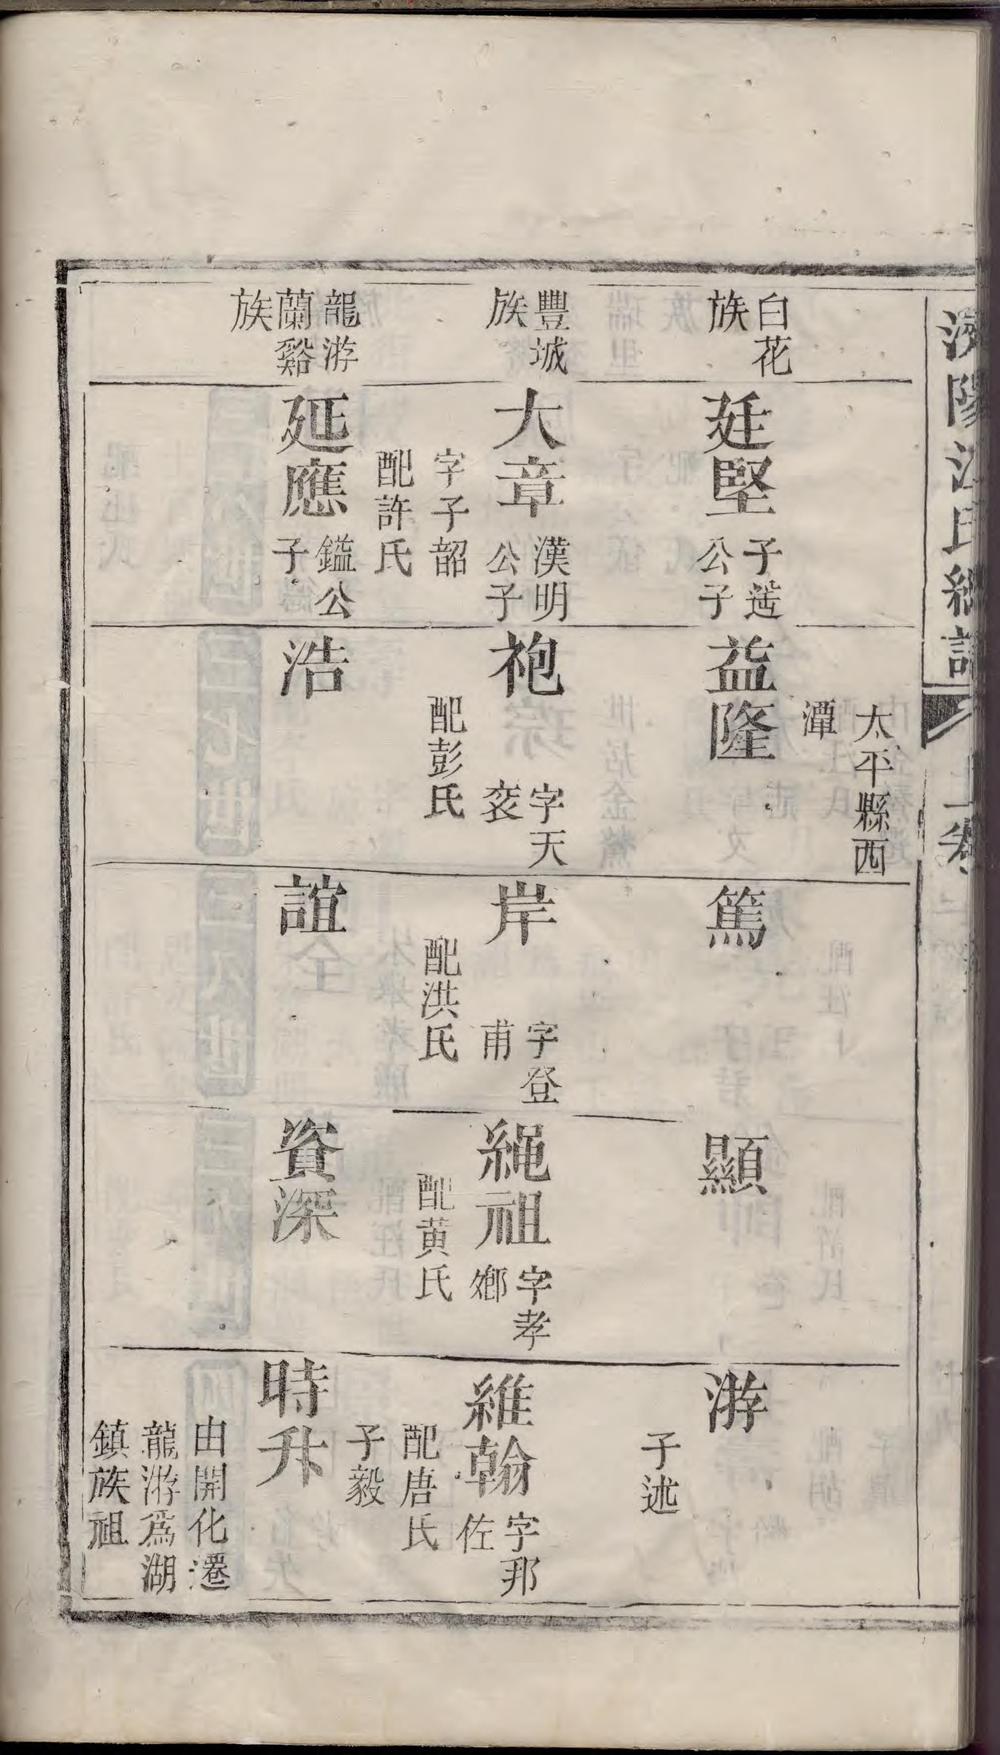 濟陽江氏統譜
上卷
白花
族
豐城
族
龍游
蘭谿
族
廷堅
子蓝
公子
大章
漢明
公子
字子韶
配許氏
延應
鎰公
子
太平縣西
潭
益隆
祂
字天
衮
配彭氏
浩
篤
岸
字登
甫
配洪氏
誼
顯
繩祖
字孝
鄉
配黃氏
資深
游
子述
維翰
字邦
佐
配唐氏
子毅
時升
由開化遷
龍游為湖
鎮族祖